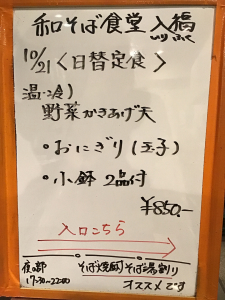 和そば食堂 入福
いりふく
10/21〈日替定食〉
温・冷)
野菜かきあげ天
・おにぎり(玉子)
・小鉢 2品付
¥850.-
入口こちら
夜の部 そば焼酎 そば湯割り
17:30-22:00 オススメです